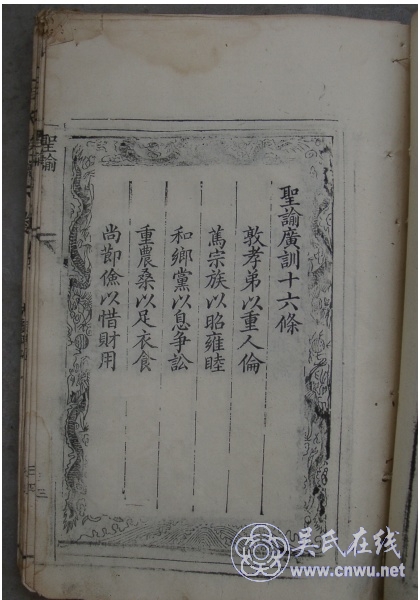 聖諭廣訓十六條
敦孝弟以重人倫
篤宗族以昭雍睦
和鄉黨以息争訟
重農桑以足衣食
尚節儉以惜財用
聖諭
吴氏在线
www.cnwu.net